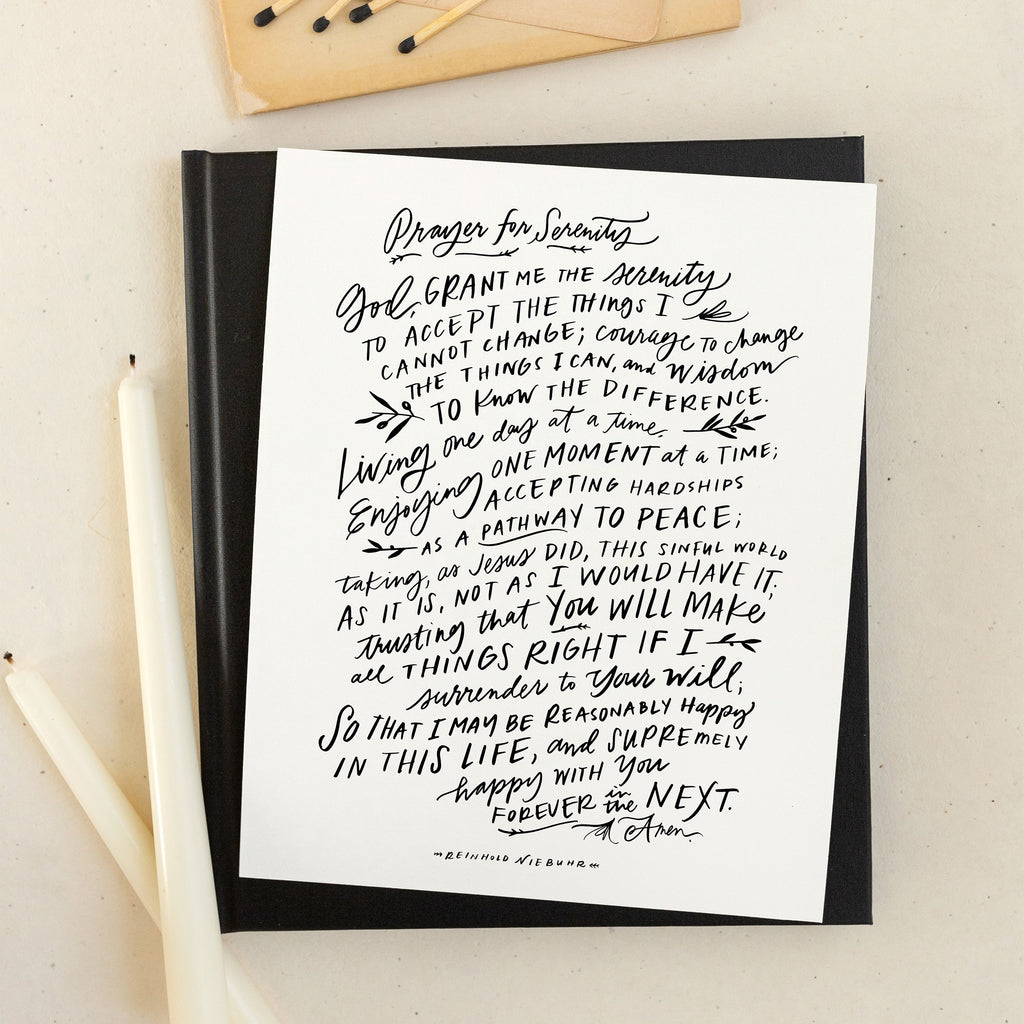 Prayer for Serenity
God, GRANT ME THE serenity
TO ACCEPT THE THINGS I
CANNOT CHANGE; courage TO change
THE THINGS I CAN, and wisdom
TO KNOW THE DIFFERENCE.
Living one day at a time.
Enjoying ONE MOMENT at a TIME;
ACCEPTING HARDSHIPS
AS A PATHWAY TO PEACE;
taking, as Jesus DID, THIS SINFUL WORLD
AS IT IS, NOT AS I WOULD HAVE IT;
trusting that You WILL MAKE
all THINGS RIGHT IF I
surrender to Your Will;
SO THAT I MAY BE REASONABLY Happy
IN THIS LIFE, and SUPREMELY
happy WITH You
FOREVER in the NEXT.
Amen.
REINHOLD NIEBUHR